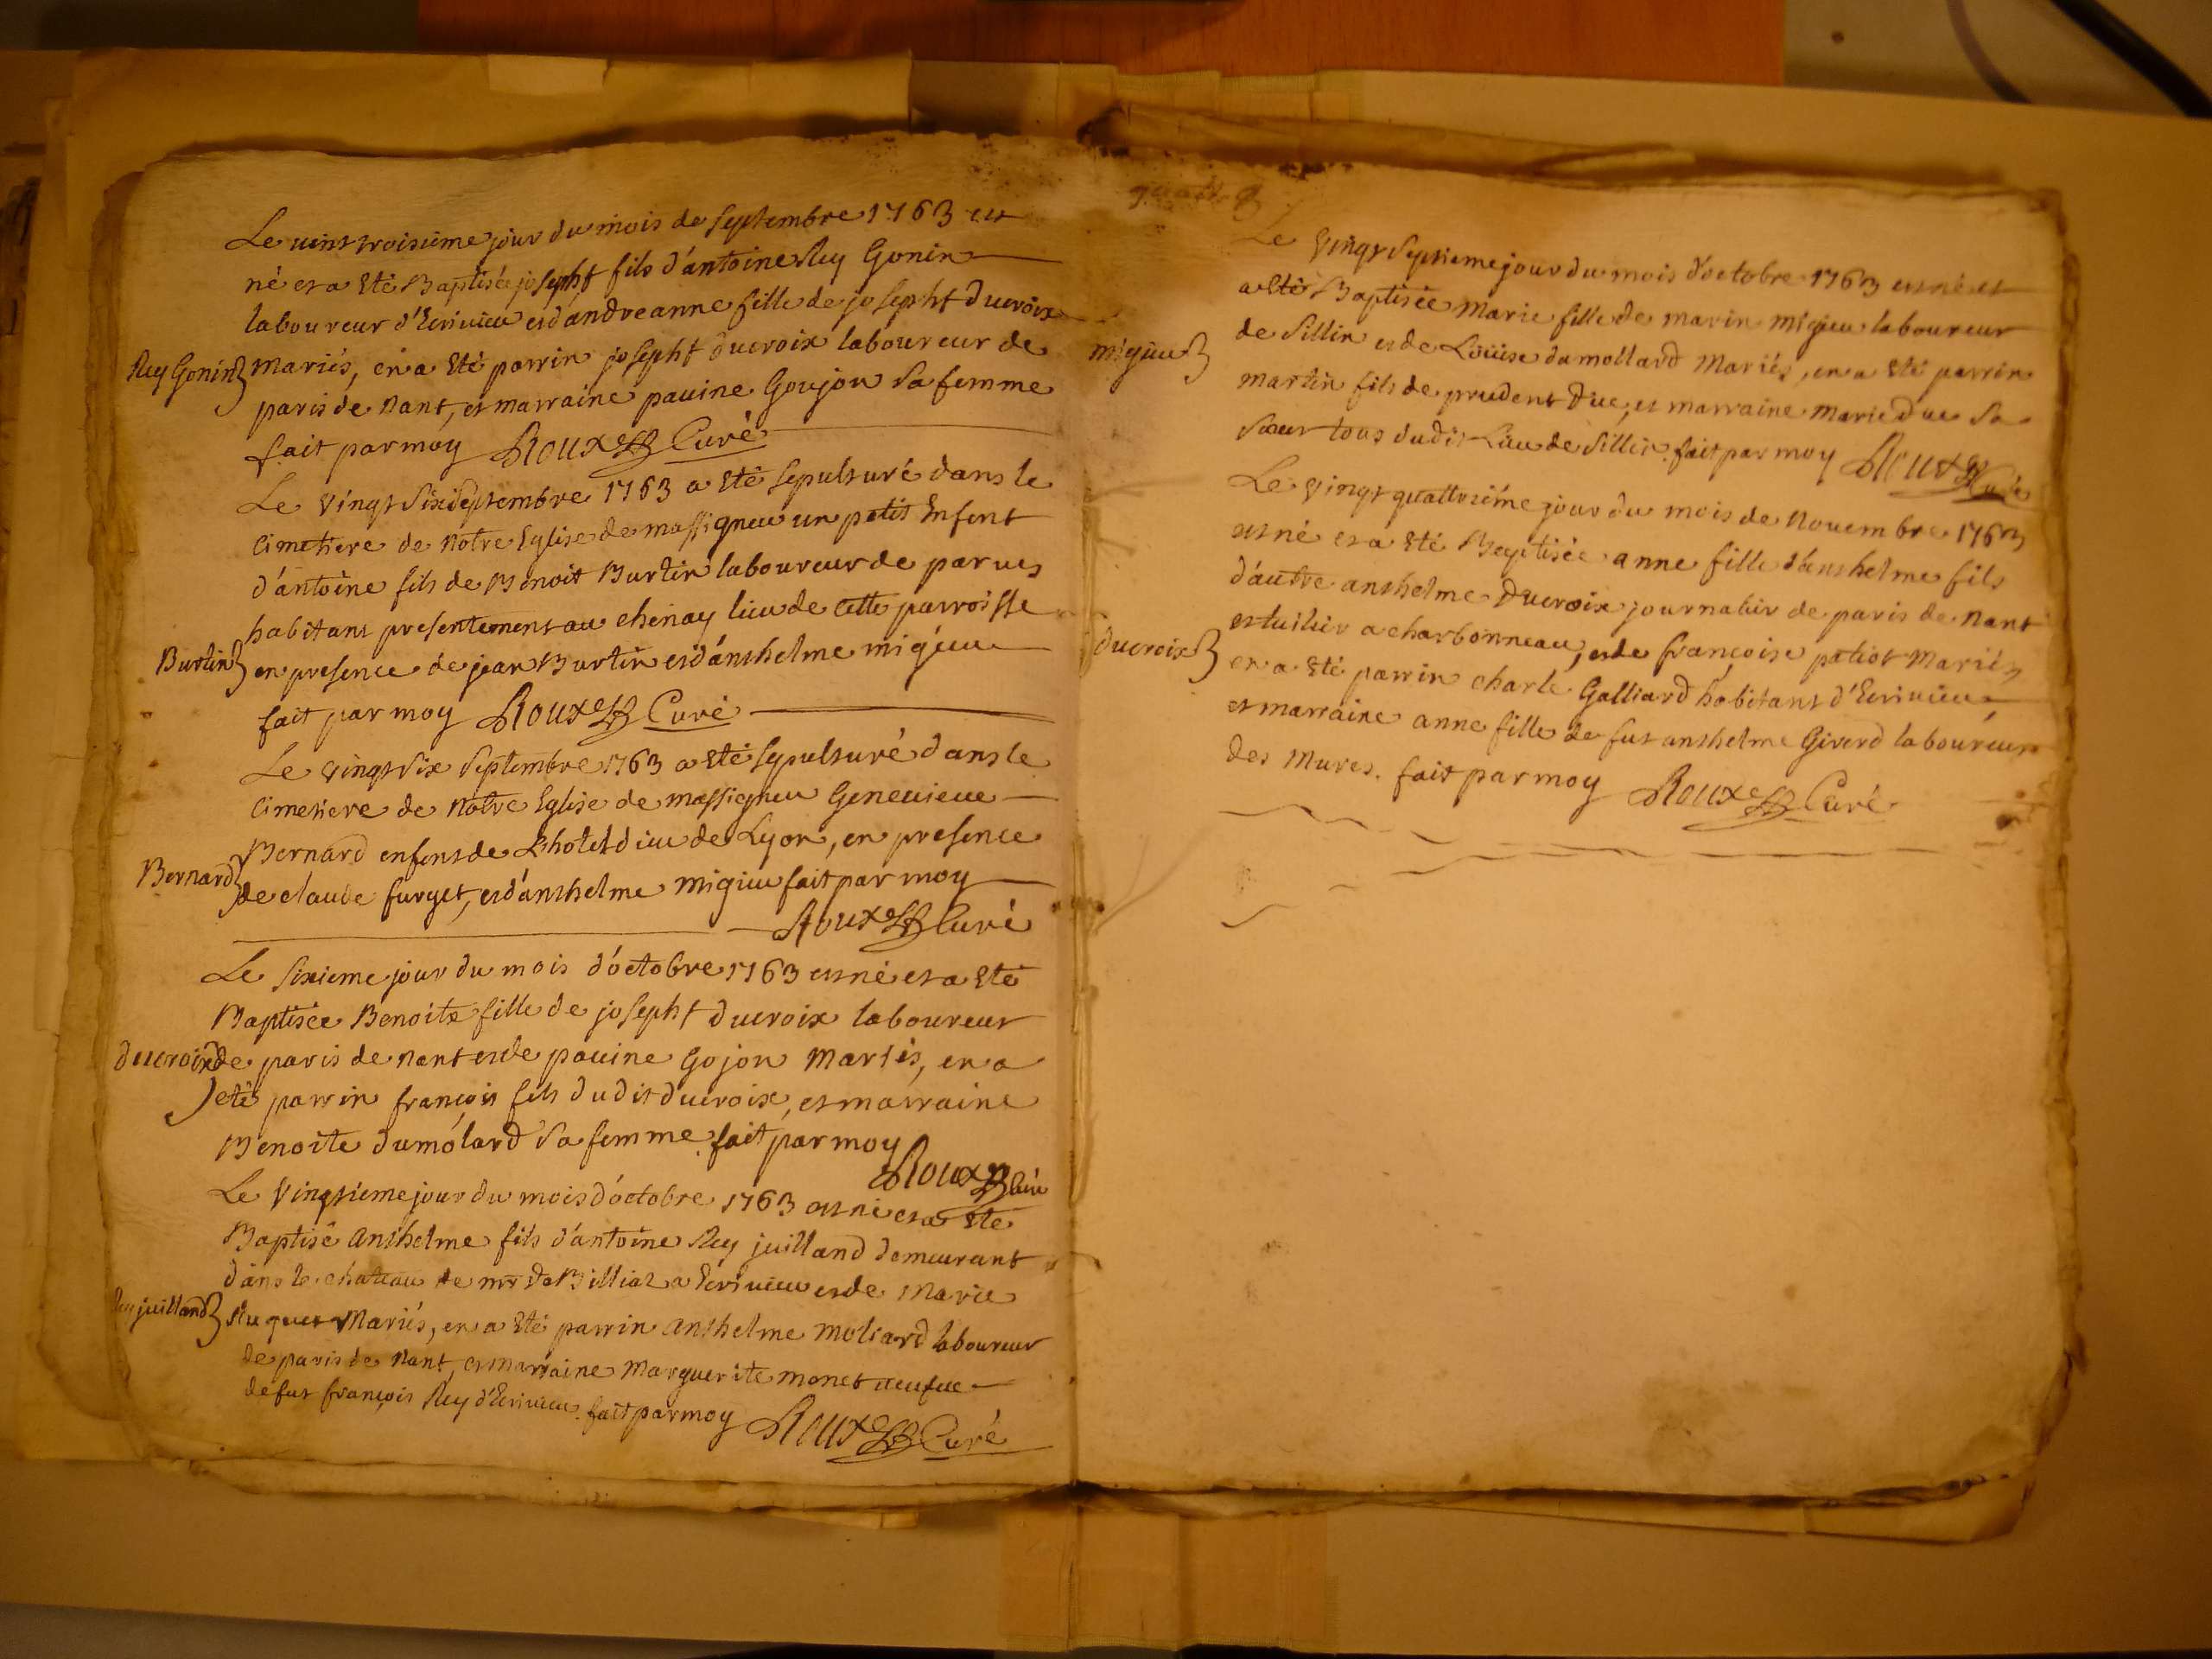 Le vint troisieme jour du mois de septembre 1763 est
né et a eté Baptisée josepht fils d'antoine Rey Gonin
laboureur d'Ecrivieu et d'andreanne fille de josepht ducroix
Rey Gonin mariés, en a eté parrin josepht ducroix laboureur de
paris de nant, et marraine pauine Goujon sa femme
fait par moy Roux Curé
Le vingt six septembre 1763 a eté sepulturé dans le
cimetiere de notre Eglise de massigneu un petit Enfent
d'antoine fils de Benoit Burtin laboureur de parves
habitant presentement au chenay lieu de cette parroisse
Burtin en presence de jean Burtin et d'anthelme migieu
fait par moy Roux Curé
Le vingt six septembre 1763 a eté sepulturé dans le
cimetiere de notre Eglise de massigneu Genevieve
Bernard enfent de L'hotel dieu de Lyon, en presence
Bernard de claude furget, et d'anthelme migieu fait par moy
Roux Curé
Le sixieme jour du mois d'octobre 1763 est né et a eté
Baptisée Benoite fille de josepht ducroix laboureur
ducroix de paris de nant et de pauine Gojon mariés, en a
eté parrin françois fils dudit ducroix, et marraine
Benoite dumólard sa femme. fait par moy
Roux Curé
Le vingtieme jour du mois d'octobre 1763 est né et a eté
Baptisé anthelme fils d'antoine Rey juilland demeurant
dans le chateau de mr de Billiat a Ecrivieu et de Marie
Rey juilland Huguet Mariés, en a eté parrin anthelme moliard laboureur
de paris de nant, et marraine Marguerite monet veufve
de fut françois Rey d'Ecrivieu. fait par moy Roux Curé
Le vingt septieme jour du mois d'octobre 1763 est né et
a eté Baptisée marie fille de marin migieu laboureur
migieu de sillin et de Loüise du mollard Mariés, en a eté parrin
martin fils de prudent duc, et marraine marie duc sa
sœur tous dudit Lieu de sillin. fait par moy Roux Curé
Le vingt quattrieme jour du mois de novembre 1763
est né et a eté Baptisée anne fille d'anthelme fils
d'autre anthelme ducroix journalier de paris de nant
ducroix et tuilier a charbonneau, et de françoise patiot Mariés
en a eté parrin charle Galliard habitant d'Ecrivieu
et marraine anne fille de fut anthelme Girerd laboureur
des Mures. fait par moy Roux Curé